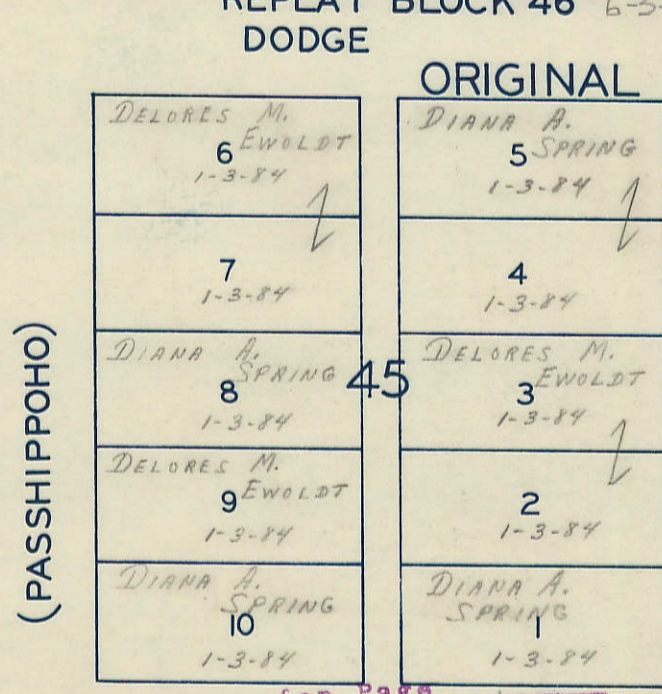 REPLAT BLOCK 46 6-3-
DODGE
ORIGINAL
DELORES M.
EWOLDT
6
1-3-84
7
1-3-84
DIANA A.
SPRING
8
1-3-84
DELORES M.
EWOLDT
9
1-3-84
DIANA A.
SPRING
10
1-3-84
(PASSHIPPOHO)
45
DIANA A.
SPRING
5
1-3-84
4
1-3-84
DELORES M.
EWOLDT
3
1-3-84
2
1-3-84
DIANA A.
SPRING
1
1-3-84
See Page